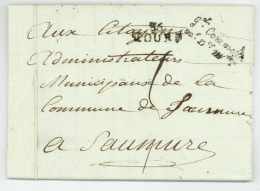 Aux Citoyens
TOURS
Administrateurs
Municipaux de la
Commune de Saumure
a Saumure